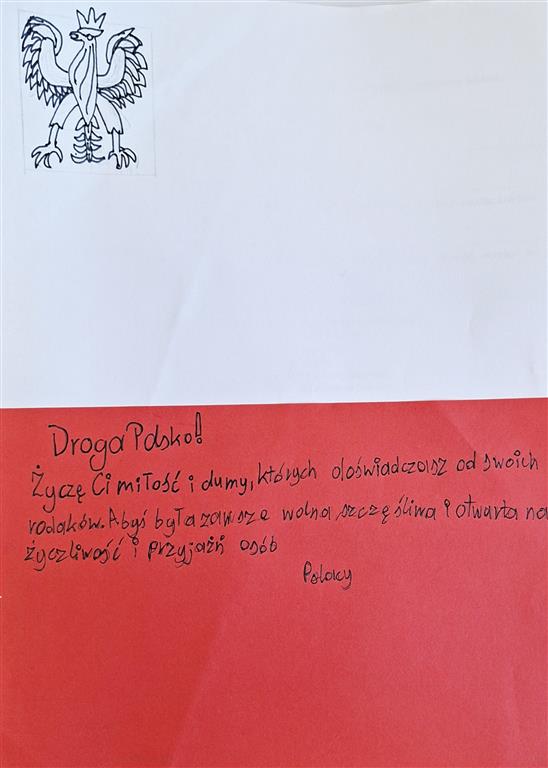 Droga Polsko!
Życzę Ci miłość i dumy, których doświadczasz od swoich
rodaków. Abyś była zawsze wolna szczęśliwa i otwarta na
życzliwość i przyjaźń osób
Polacy